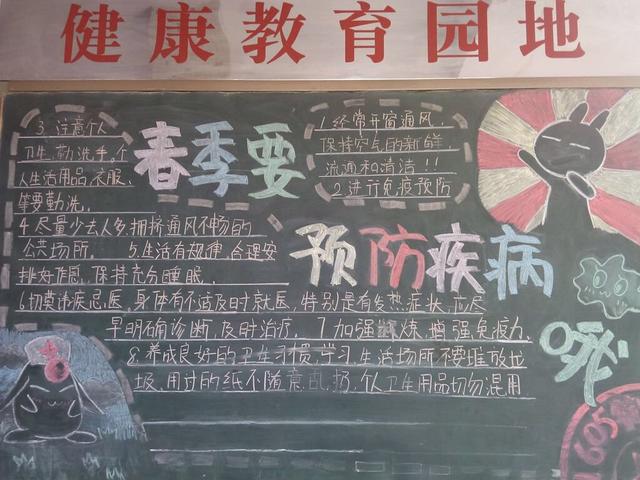 健康教育园地
春季要
预防疾病
1 经常开窗通风、
保持空气的新鲜
流通和清洁!!
2 进行免疫预防
3、注意个人
卫生、勤洗手、个
人生活用品、衣服、
等要勤洗、
4 尽量少去人多、拥挤通风不畅的
公共场所、 5、生活有规律、合理安
排好作息、保持充分睡眠、
6 切莫讳疾忌医、身体有不适及时就医、特别是有发热症状、应尽
早明确诊断、及时治疗、 7 加强锻炼、增强免疫力、
8 养成良好的卫生习惯、学习、生活场所不要堆放垃
圾、用过的纸不随意乱扔、个人卫生用品切勿混用
1605